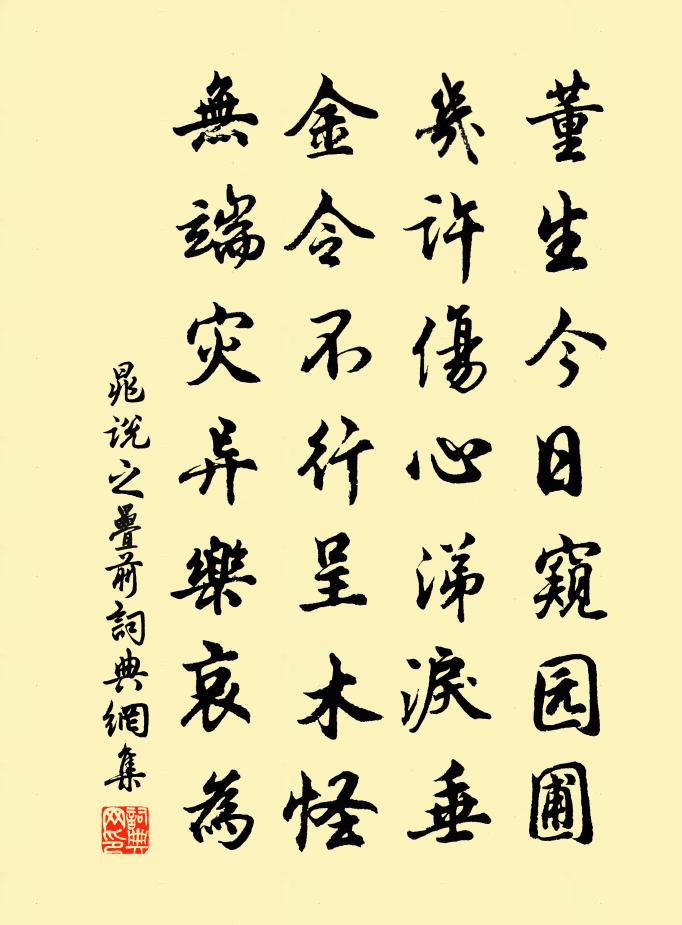 董生今日窺园圃
幾許傷心涕淚垂
金令不行呈木怪
無端灾异樂哀為
晁说之疊前詞典網集
詞典网印